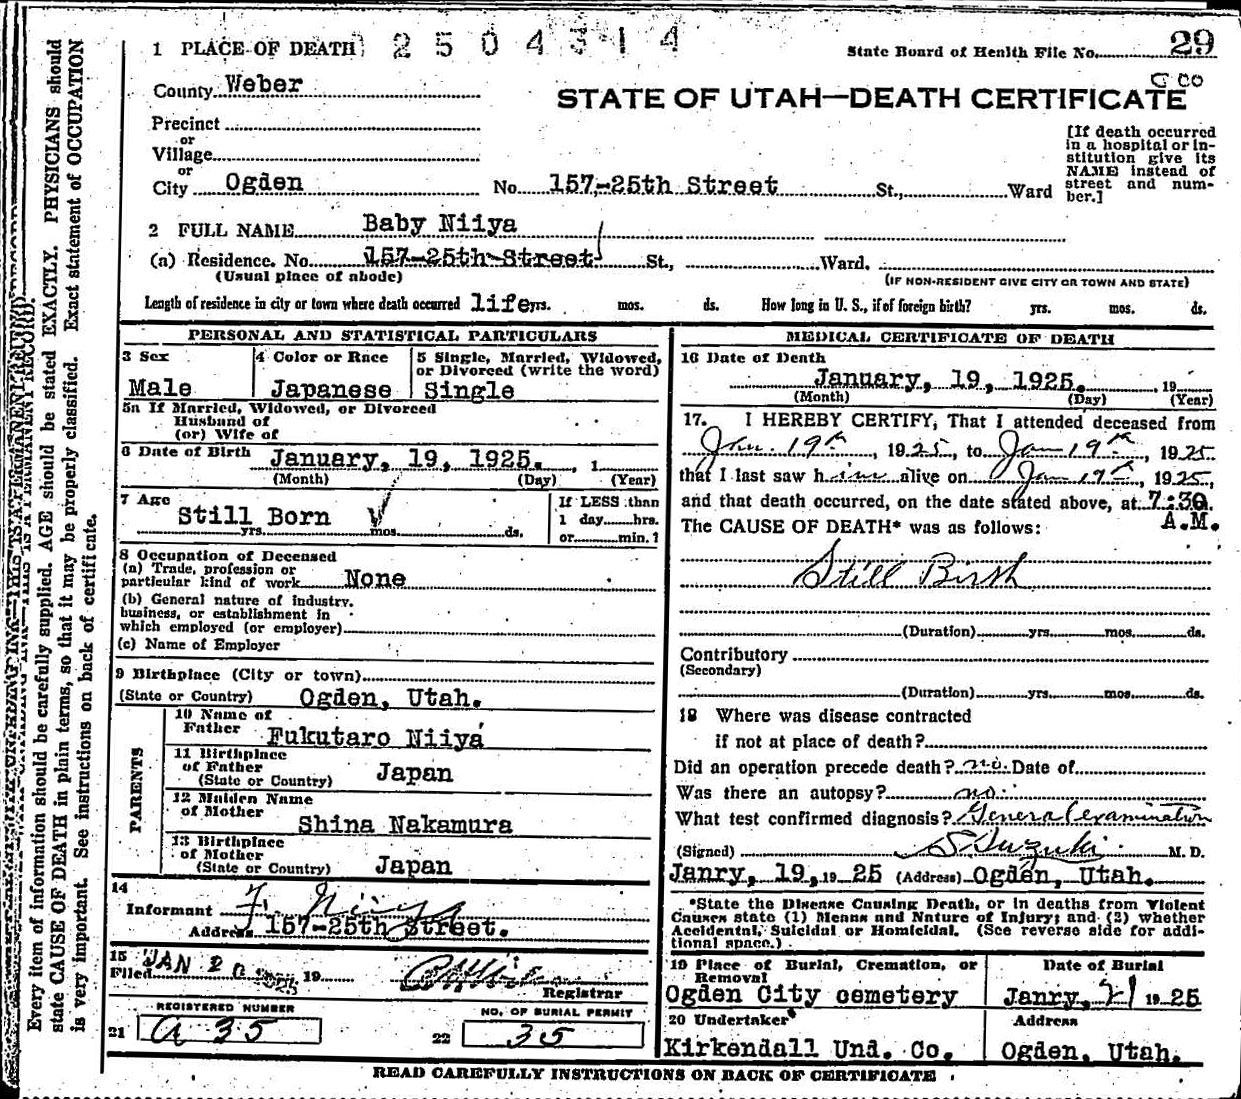 Every item of information should be carefully supplied. AGE should be stated EXACTLY. PHYSICIANS should
state CAUSE OF DEATH in plain terms, so that it may be properly classified. Exact statement of OCCUPATION
is very important. See instructions on back of certificate.
1 PLACE OF DEATH 2504314
State Board of Health File No. 29
County Weber
C CO
STATE OF UTAH—DEATH CERTIFICATE
Precinct
or
Village
or
City Ogden No. 157-25th Street St., Ward
[If death occurred
in a hospital or in-
stitution give its
NAME instead of
street and num-
ber.]
2 FULL NAME Baby Niiya
(a) Residence. No. 157-25th Street St., Ward.
(Usual place of abode) (IF NON-RESIDENT GIVE CITY OR TOWN AND STATE)
Length of residence in city or town where death occurred life yrs. mos. ds. How long in U. S., if of foreign birth? yrs. mos. ds.
PERSONAL AND STATISTICAL PARTICULARS
3 Sex Male
4 Color or Race Japanese
5 Single, Married, Widowed,
or Divorced (write the word)
Single
5a If Married, Widowed, or Divorced
Husband of
(or) Wife of
6 Date of Birth January, 19, 1925. , 1
(Month) (Day) (Year)
7 Age Still Born
yrs. mos. ds.
If LESS than
1 day hrs.
or min.?
8 Occupation of Deceased
(a) Trade, profession or
particular kind of work None
(b) General nature of industry,
business, or establishment in
which employed (or employer)
(c) Name of Employer
9 Birthplace (City or town)
(State or Country) Ogden, Utah.
PARENTS
10 Name of
Father Fukutaro Niiya
11 Birthplace
of Father
(State or Country) Japan
12 Maiden Name
of Mother Shina Nakamura
13 Birthplace
of Mother
(State or Country) Japan
14
Informant F. Niiya
Address 157-25th Street.
15
Filed JAN 20 1925 19
Registrar
REGISTERED NUMBER
21 a 35
NO. OF BURIAL PERMIT
22 35
MEDICAL CERTIFICATE OF DEATH
16 Date of Death
January, 19, 1925. , 19
(Month) (Day) (Year)
17. I HEREBY CERTIFY, That I attended deceased from
Jan. 19th, 1925, to Jan 19th, 1925
that I last saw him alive on Jan 19th, 1925,
and that death occurred, on the date stated above, at 7:30
A.M.
The CAUSE OF DEATH* was as follows:
Still Birth
(Duration) yrs. mos. ds.
Contributory
(Secondary)
(Duration) yrs. mos. ds.
18 Where was disease contracted
if not at place of death?
Did an operation precede death? no. Date of
Was there an autopsy? no.
What test confirmed diagnosis? General examination
(Signed) S Suzuki M. D.
Janry, 19, 19 25 (Address) Ogden, Utah.
*State the Disease Causing Death, or in deaths from Violent
Causes state (1) Means and Nature of Injury; and (2) whether
Accidental, Suicidal or Homicidal. (See reverse side for addi-
tional space.)
19 Place of Burial, Cremation, or
Removal
Ogden City cemetery
Date of Burial
Janry, 21 19 25
20 Undertaker
Kirkendall Und. Co.
Address
Ogden, Utah.
READ CAREFULLY INSTRUCTIONS ON BACK OF CERTIFICATE